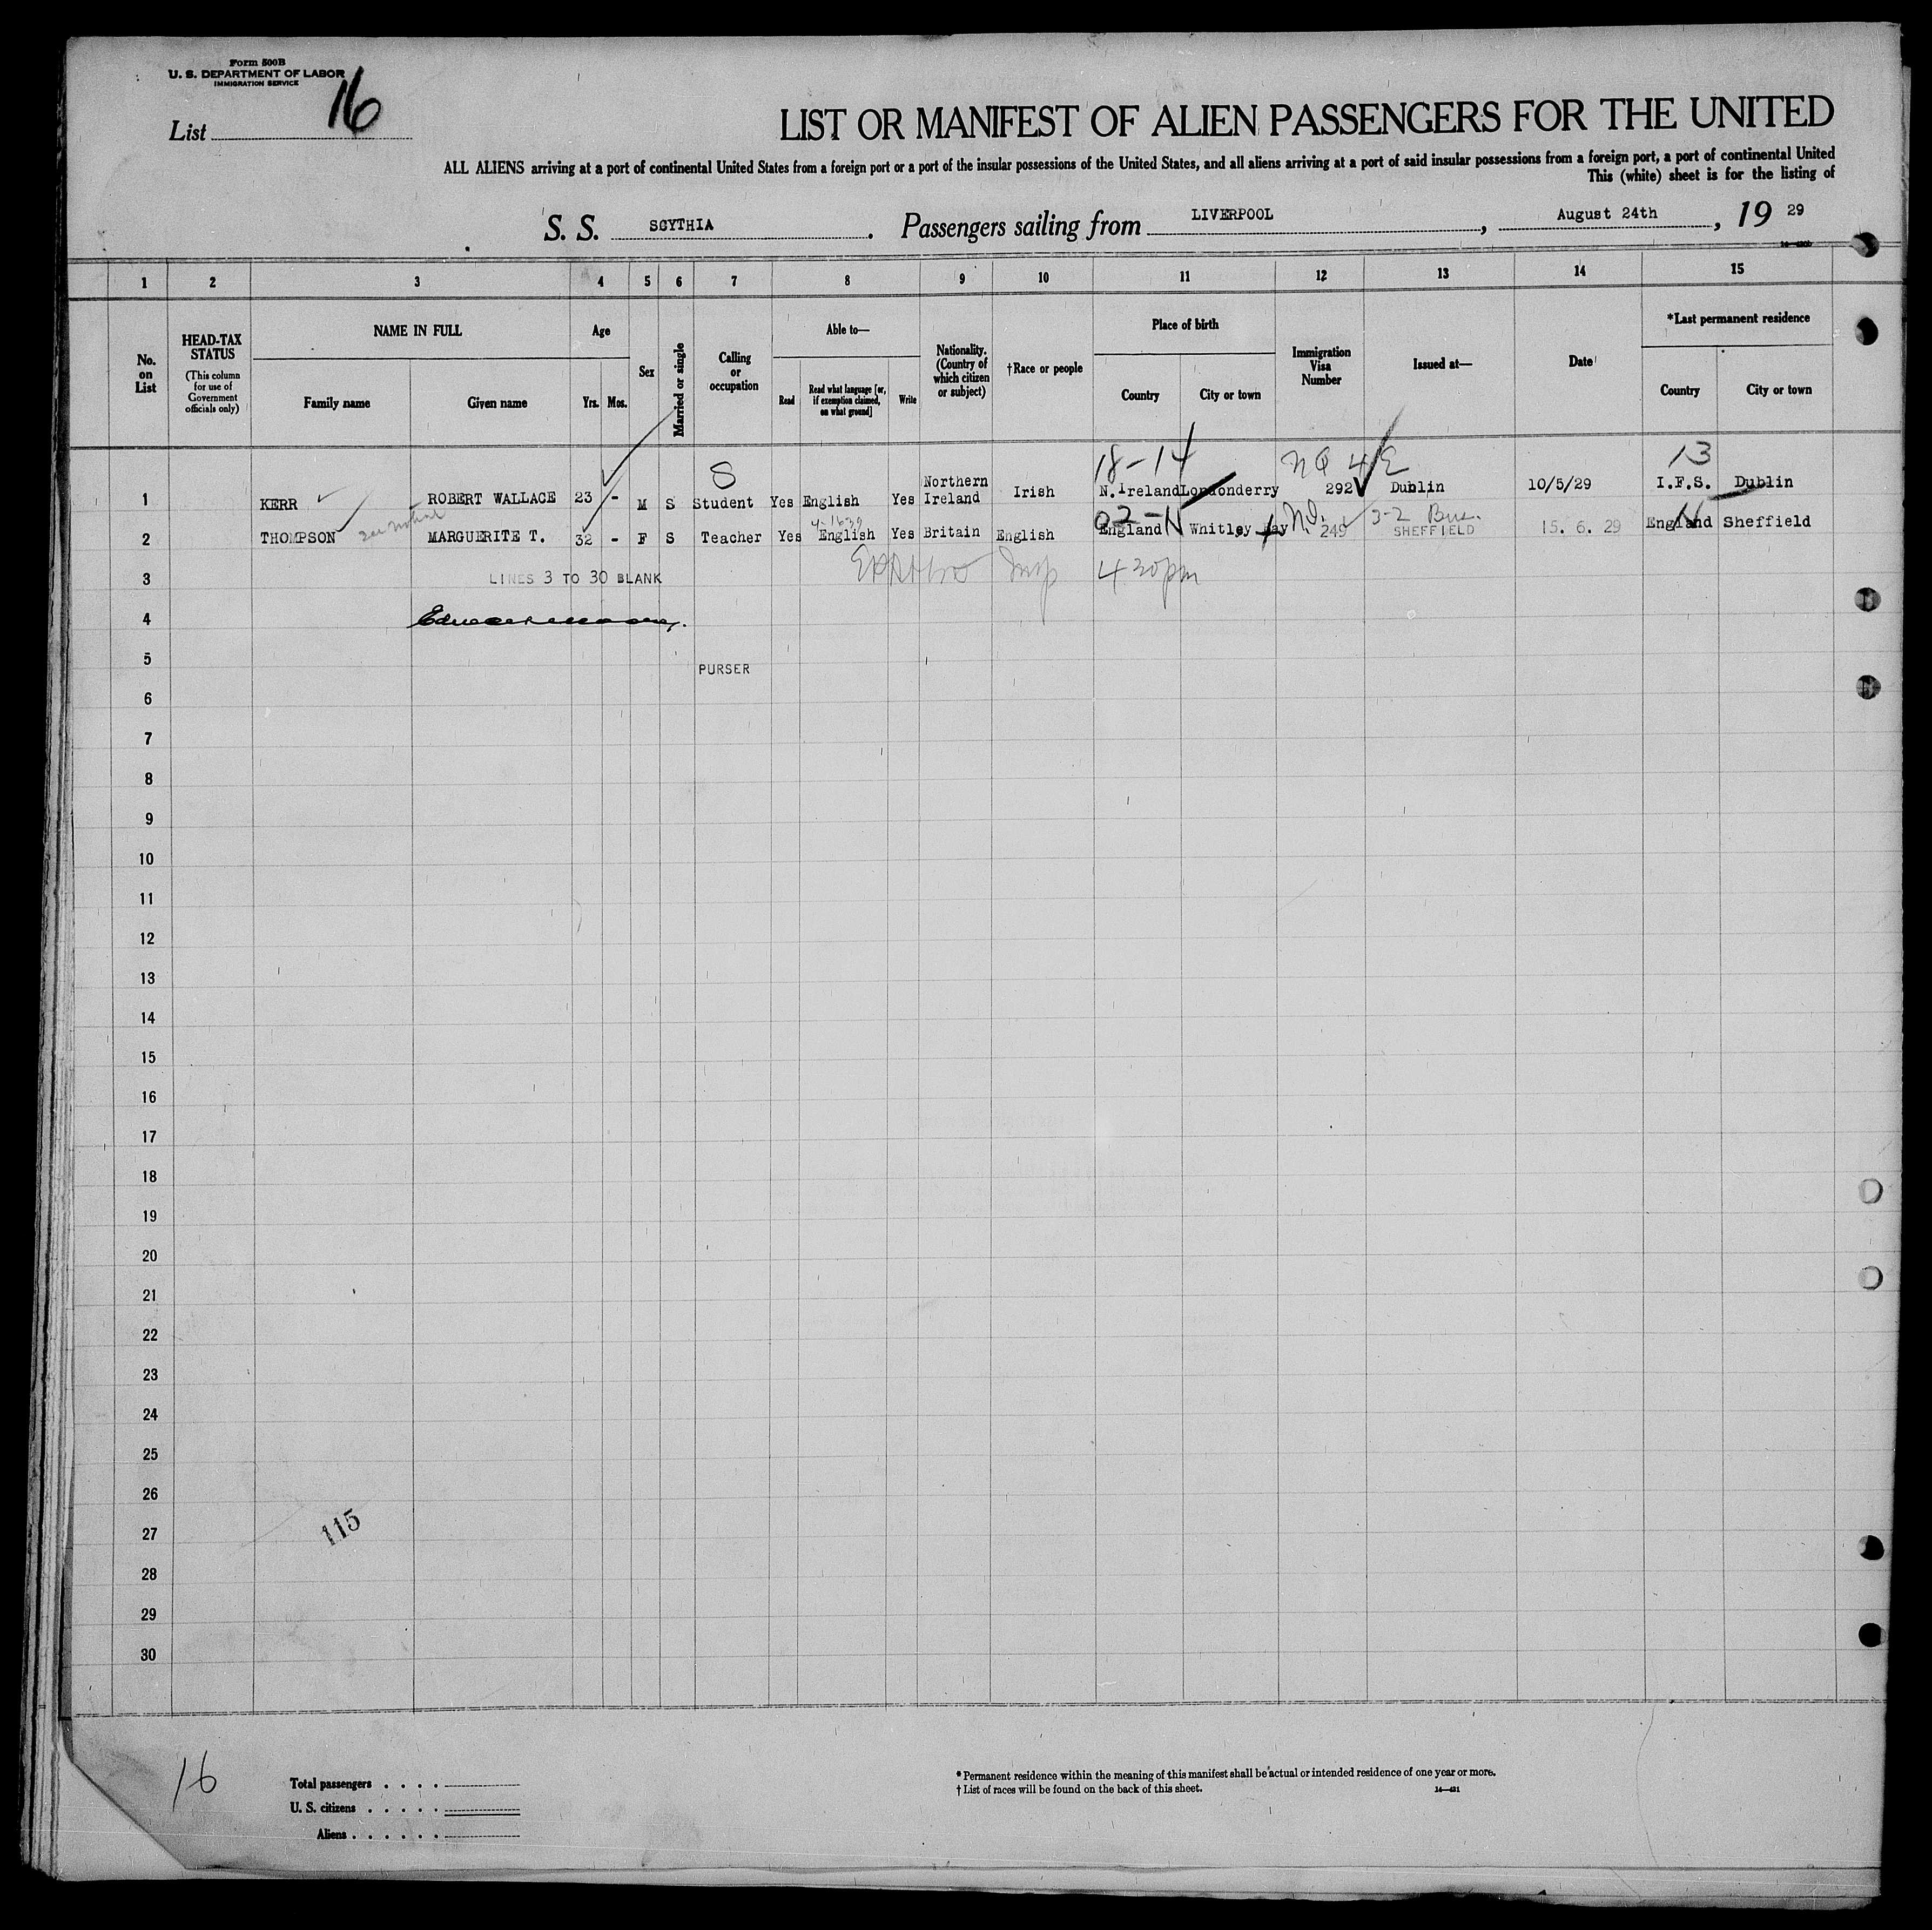 Form 500B
U. S. DEPARTMENT OF LABOR
IMMIGRATION SERVICE
List 16
LIST OR MANIFEST OF ALIEN PASSENGERS FOR THE UNITED
ALL ALIENS arriving at a port of continental United States from a foreign port or a port of the insular possessions of the United States, and all aliens arriving at a port of said insular possessions from a foreign port, a port of continental United
This (white) sheet is for the listing of
S. S. SCYTHIA. Passengers sailing from LIVERPOOL, August 24th, 19 29
1 2 3 4 5 6 7 8 9 10 11 12 13 14 15
No. on List
HEAD-TAX STATUS
(This column for use of Government officials only)
NAME IN FULL
Family name
Given name
Age
Yrs. Mos.
Sex
Married or single
Calling or occupation
Able to—
Read
Read what language [or, if exemption claimed, on what ground]
Write
Nationality. (Country of which citizen or subject)
†Race or people
Place of birth
Country
City or town
Immigration Visa Number
Issued at—
Date
*Last permanent residence
Country
City or town
S 18-14 NQ 4/E 13
1 KERR ROBERT WALLACE 23 - M S Student Yes English Yes Northern Ireland Irish N.Ireland Londonderry 292 Dublin 10/5/29 I.F.S. Dublin
02-11 3-2
2 THOMPSON MARGUERITE T. 32 - F S Teacher Yes English Yes Britain English England Whitley Bay 249 SHEFFIELD 15. 6. 29 England Sheffield
3 LINES 3 TO 30 BLANK 4 30pm
4
5 PURSER
6
7
8
9
10
11
12
13
14
15
16
17
18
19
20
21
22
23
24
25
26
27 115
28
29
30
16
Total passengers . . . .
U. S. citizens . . . . .
Aliens . . . . . .
* Permanent residence within the meaning of this manifest shall be actual or intended residence of one year or more.
† List of races will be found on the back of this sheet.
14—421